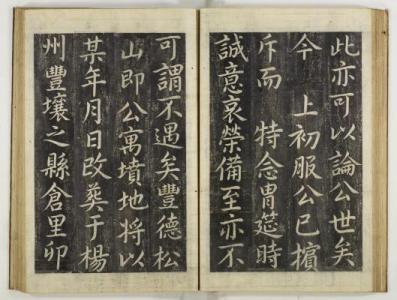 此亦可以論公世矣
今 上初服公已擯
斥而 特念胄筵時
誠意哀榮備至亦不
可謂不遇矣豐德松
山即公寓墳地將以
某年月日改葬于楊
州豐壤之縣倉里卯